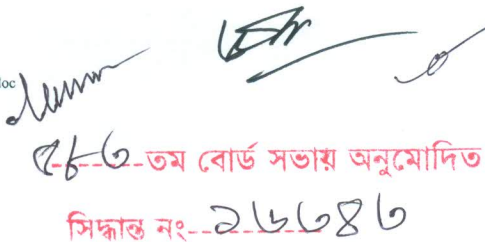 doc
৫৮৩ তম বোর্ড সভায় অনুমোদিত
সিদ্ধান্ত নং--১৬৩৪৩